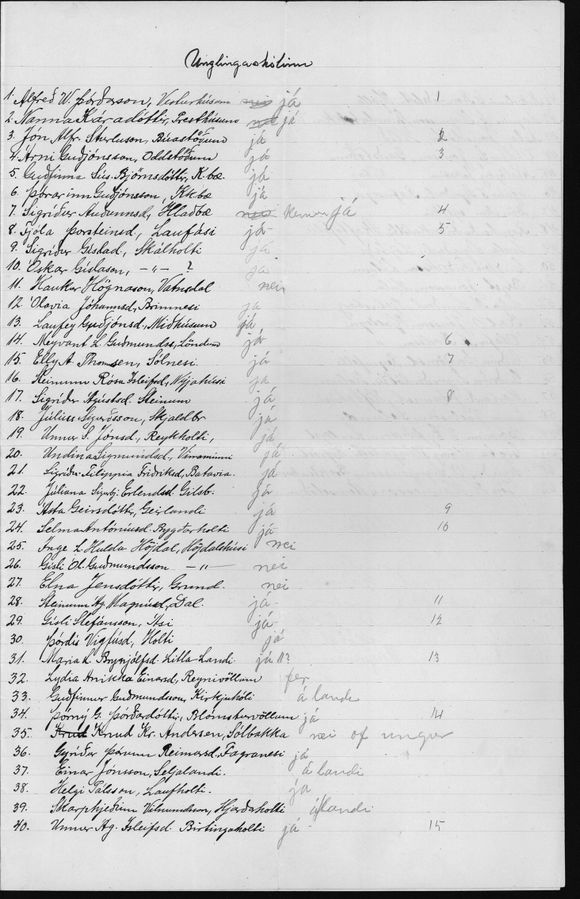 Unglingaskólinn
1. Alfred W. Þórðarson, Vesturhúsum nei já 1
2. Nanna Káradóttir, Presthúsum nei já
3. Jón Alfr. Sturluson, Búastöðum já 2
4. Árni Guðjónsson, Oddstöðum já 3
5. Guðfinna Björnsdóttir, K.bæ. já
6. Þórarinn Guðjónsson, Kk.bæ já
7. Sigríður Auðunnsd, Hlaðbæ nei kemur já 4
8. Fjóla Þorsteinsd, Laufási já 5
9. Sigríður Gíslad, Skálholti já
10. Óskar Gíslason, - " - ? já
11. Haukur Högnason, Vatnsdal nei
12. Ólavia Jóhannsd, Brimnesi já
13. Laufey Guðjónsd, Miðhúsum já
14. Meyvant L. Guðmundss, London já 6
15. Elly A. Thomsen, Sólnesi. já 7
16. Steinunn Rósa Ísleifsd, Nýjahúsi já
17. Sigríður Ágústsd. Steinum já 8
18. Júlíus Sigurðsson, Skjaldbr já
19. Unnur S. Jónsd, Reykholti, já
20. Undína Sigmundsd, Vinaminni já
21. Sigríður Filippia Friðriksd, Batavia. já
22. Júlíana Sigurbj. Erlendsd. Gilsb. já
23. Ásta Geirsdóttir, Geirlandi já 9
24. Selma Antóníusd. Byggðarholti já 10
25. Inga L. Hulda Höjdal, Höjdalshúsi nei
26. Gísli Ól. Guðmundsson - " - nei
27. Elna Jensdóttir, Grund. nei
28. Steinunn Ág. Magnúsd, Dal. já 11
29. Gísli Stefánsson, Ási já 12
30. Þórdís Vigfúsd, Holti já
31. María K. Brynjólfsd. Litla-Landi já 13
32. Lydia Annikka Einarsd, Reynivöllum fer
33. Guðfinnur Guðmundsson, Kirkjuhóli á landi
34. Þórný G. Þórðardóttir, Blómsturvöllum já 14
35. Knud Knud Kr. Andersen, Sólbakka nei of ungur
36. Gyríður Þórunn Reimarsd, Fagranesi já
37. Einar Jónsson, Seljalandi. á landi
38. Helgi Pálsson, Laufholti. já
39. Skarphjeðinn Vilmundsson, Hjarðarholti á landi
40. Unnur Ág. Ísleifsd. Birtingaholti já 15